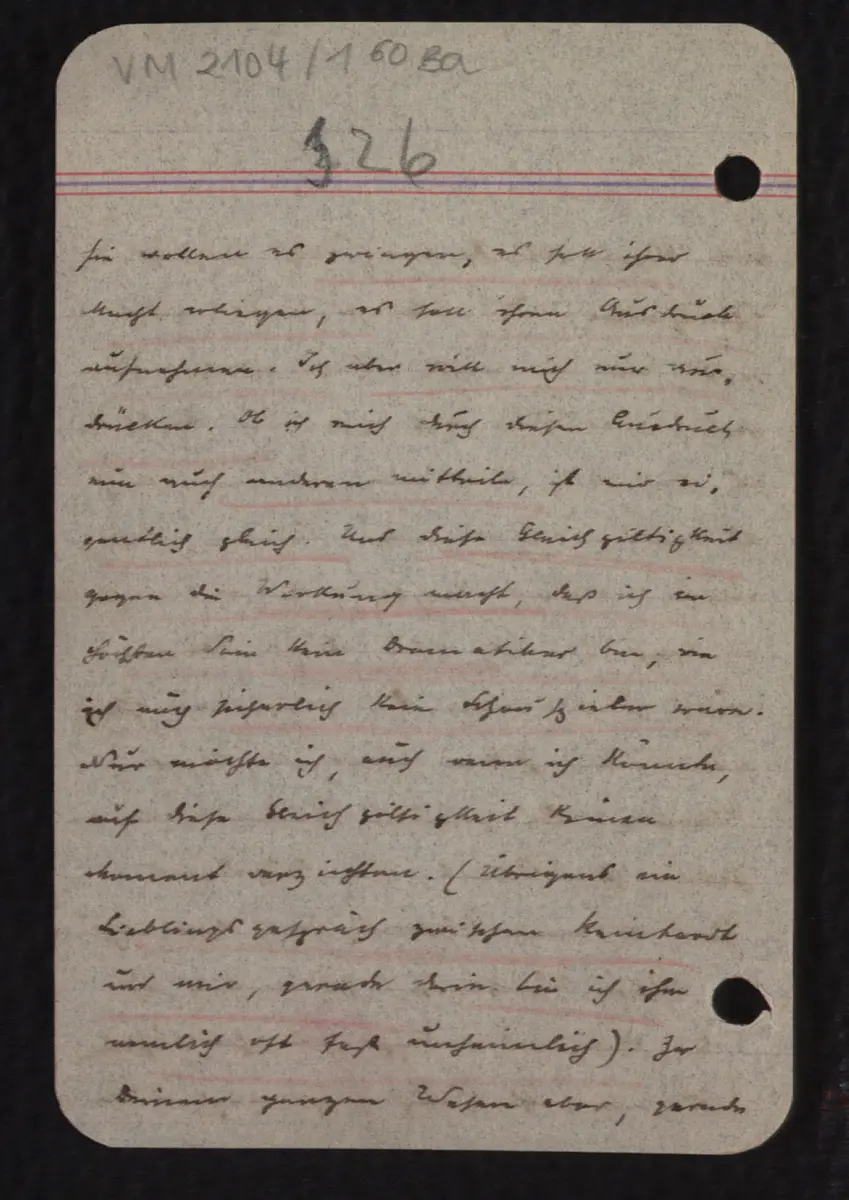 VM 2104/1 60 Ba
326
sie wollen es zwingen, es soll ihrer
Macht erliegen, es soll ihren Ausdruck
aufnehmen. Ich aber will mich nur aus-
drücken. Ob ich mich durch diesen Ausdruck
nun auch anderen mitteile, ist mir ei-
gentlich gleich. Und diese Gleichgiltigkeit
gegen die Wirkung macht, daß ich im
höchsten Sinn kein Dramatiker bin, wie
ich auch sicherlich kein Schauspieler wäre.
Nur möchte ich, auch wenn ich könnte,
auf diese Gleichgiltigkeit keinen
Moment verzichten. (Übrigens ein
Lieblingsgespräch zwischen Reinhardt
und mir, gerade darin bin ich ihm
nemlich oft fast unheimlich). Zu
Deinem ganzen Wesen aber, gerade